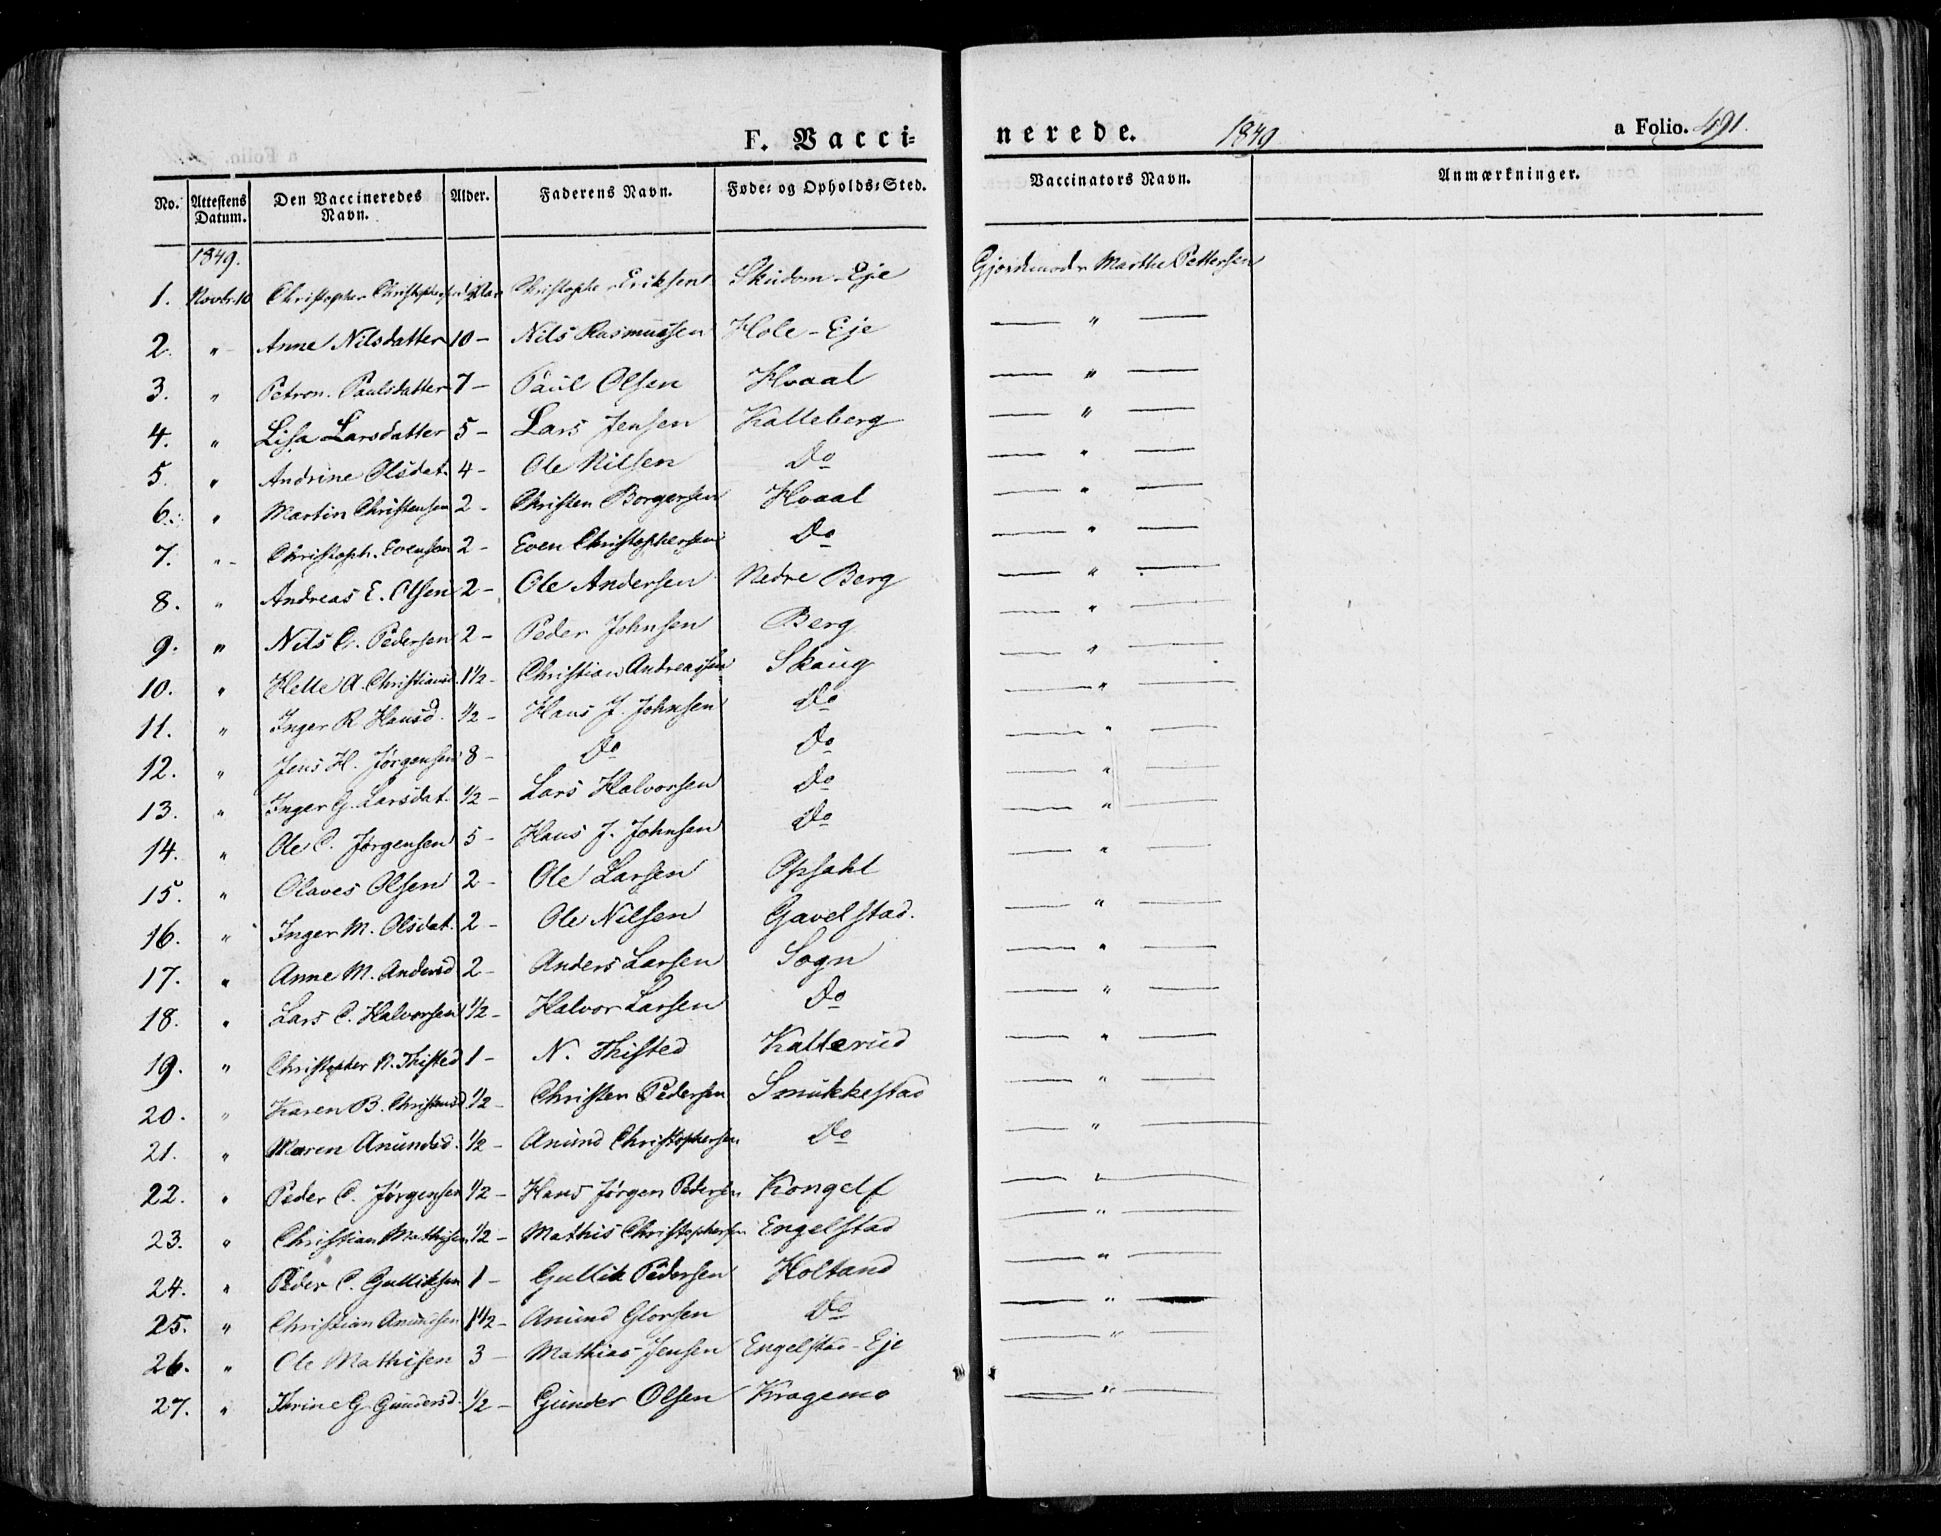 F. Vacci-
nerede. 1849 a Folio. 491.
No. Attestens Datum. Den Vaccineredes Navn. Alder. Faderens Navn. Føde- og Opholds-Sted. Vaccinators Navn. Anmærkninger.
1849.
1. Novbr. 10 Christopher Christophersen Aar Christopher Eriksen Skudom-Eje Gjordemoder Marthe Pettersen
2. " Anne Nilsdatter 10 - Nils Rasmussen Hole-Eje — " —
3. " Petron. Paulsdatter 7 - Paul Olsen Hvaal — " —
4. " Lisa Larsdatter 5 - Lars Jensen Kalleberg — " —
5. " Andrine Olsdat. 4 - Ole Nilsen Do — " —
6. " Martin Christensen 2 - Christen Borgersen Hvaal — " —
7. " Christoph. Evensen 2 - Even Christophersen Do — " —
8. " Andreas E. Olsen 2 - Ole Andersen Nedre Berg — " —
9. " Nils C. Pedersen 2 - Peder Johnsen Berg — " —
10. " Helle A. Christiansd. 1½ - Christian Andreassen Skaug — " —
11. " Inger R. Hansd. ½ - Hans J. Johnsen Do — " —
12. " Jens H. Jørgensen 8 - Do Do — " —
13. " Inger G. Larsdat. ½ - Lars Halvorsen Do — " —
14. " Ole C. Jørgensen 5 - Hans J. Johnsen Do — " —
15. " Olaves Olsen 2 - Ole Larsen Opsahl — " —
16. " Inger M. Olsdat. 2 - Ole Nilsen Gavelstad. — " —
17. " Anne M. Andersd 2 - Anders Larsen Sogn — " —
18. " Lars C. Halvorsen ½ - Halvor Larsen Do — " —
19. " Christopher N. Thisted 1 - N. Thisted Kalterud — " —
20. " Karen B. Christensd ½ - Christen Pedersen Smukkestad — " —
21. " Maren Anundsd. ½ - Anund Christophersen Do — " —
22. " Peder C. Jørgensen ½ - Hans Jørgen Pedersen Kongelf — " —
23. " Christian Mathisen ½ - Mathis Christophersen Engelstad — " —
24. " Peder C. Gulliksen 1 - Gullik Pedersen Holtand — " —
25. " Christian Anundsen 1½ - Anund Glorsen Do — " —
26. " Ole Mathisen 3 - Mathias Jensen Engelstad-Eje — " —
27. " Thrine G Gundersd. ½ - Gunder Olsen Kragemo — " —